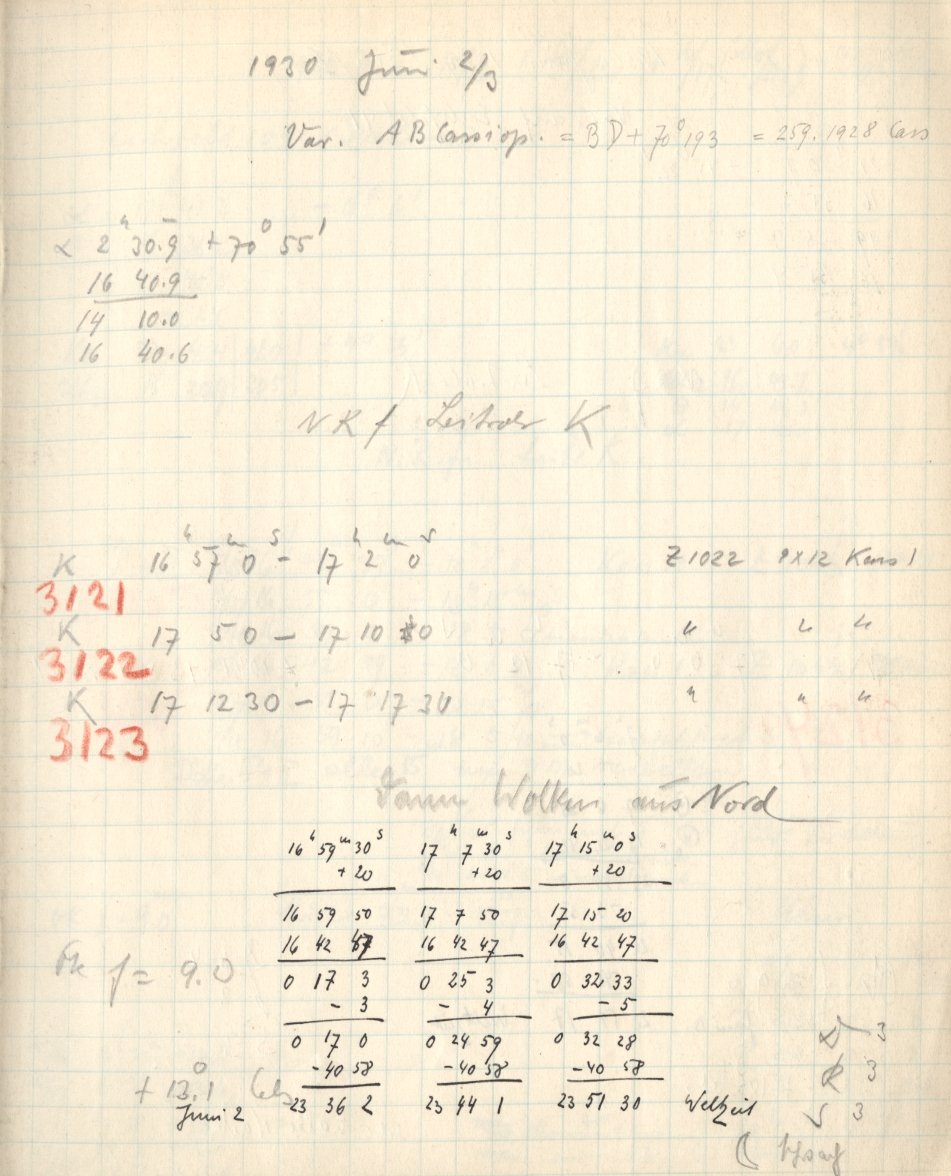 1930 Juni 2/3
Var. AB Cassiop. = BD + 70° 193 = 259.1928 Cass
α 2ʰ 30.9 + 70° 55'
16 40.9
14 10.0
16 40.6
NKf K
K 16ʰ 57ᵐ 0ˢ - 17ʰ 2ᵐ 0ˢ Z1022 9x12 Kass 1
3121
K 17 5 0 - 17 10 0 " " "
3122
K 17 12 30 - 17 17 30 " " "
3123
Dann Wolken aus Nord
16ʰ 59ᵐ 30ˢ 17ʰ 7ᵐ 30ˢ 17ʰ 15ᵐ 0ˢ
+ 20 + 20 + 20
16 59 50 17 7 50 17 15 20
16 42 47 16 42 47 16 42 47
f = 9.0 0 17 3 0 25 3 0 32 33
- 3 - 4 - 5
0 17 0 0 24 59 0 32 28 3
+ 13.°1 Cels - 40 58 - 40 58 - 40 58 3
Juni 2 23 36 2 23 44 1 23 51 30 Weltzeit 3